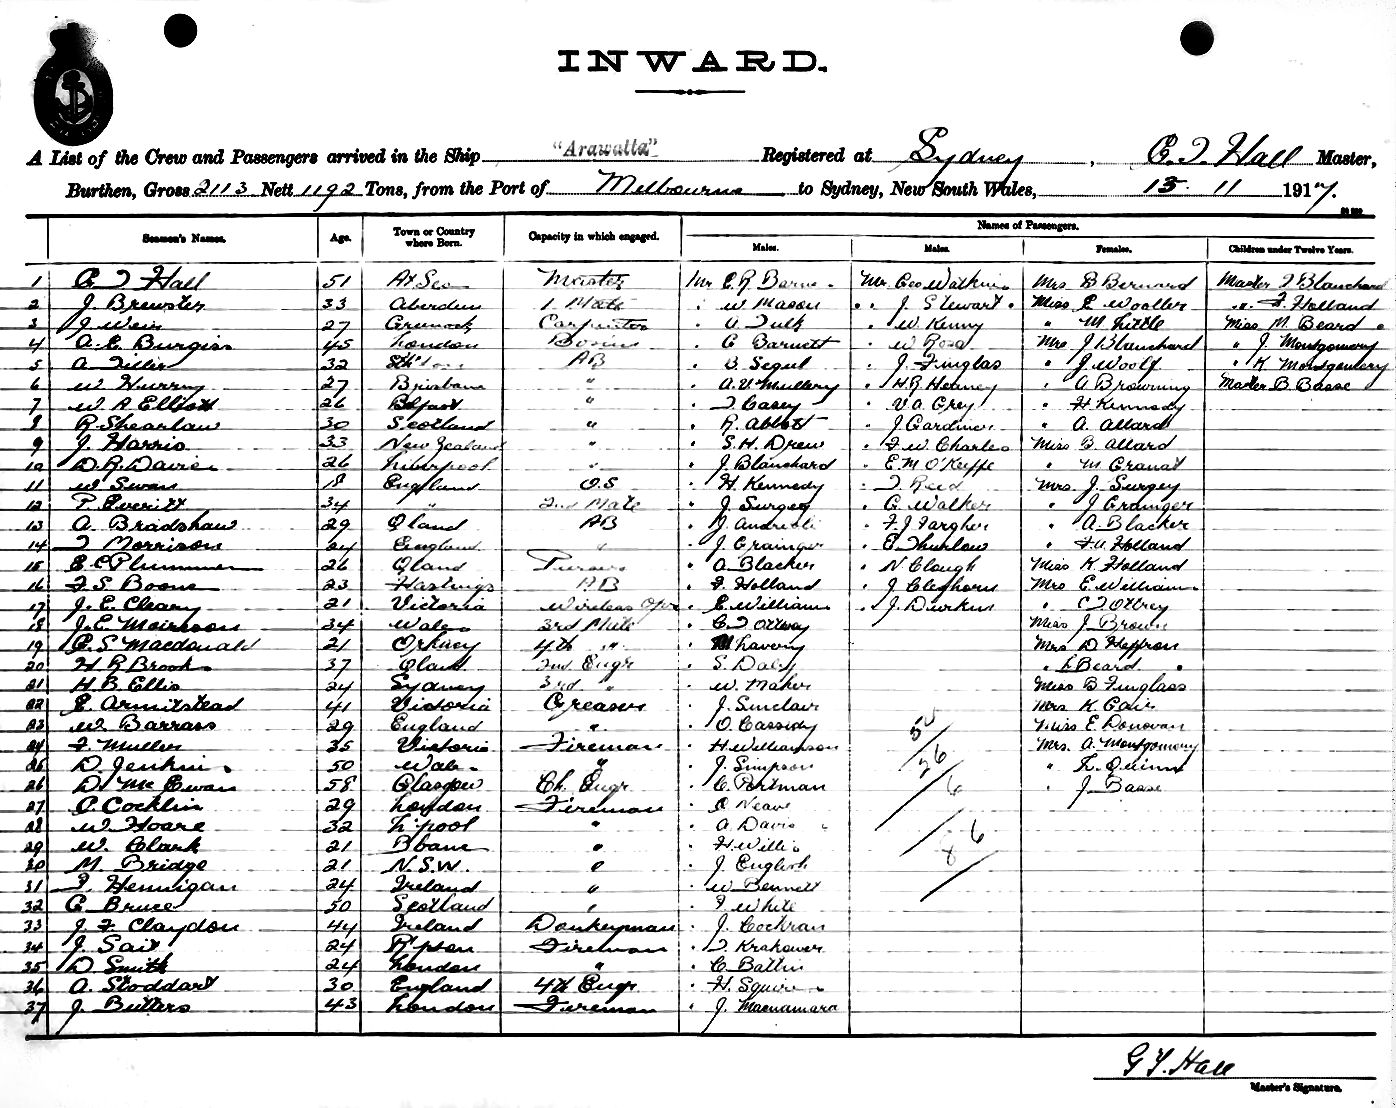 INWARD.
A List of the Crew and Passengers arrived in the Ship "Arawatta" Registered at Sydney, G T Hall Master,
Burthen, Gross 2113 Nett 1192 Tons, from the Port of Melbourne to Sydney, New South Wales, 13 11 1917.
Seamen's Names. Age. Town or Country where Born. Capacity in which engaged. Names of Passengers.
Males. Males. Females. Children under Twelve Years.
1 G T Hall 51 At Sea Master Mr E. R. Mr. Geo Watkins Mrs B Bernard Master J Blanchard
2 J Brewster 33 Aberdeen 1 Mate " W Mason " J Stewart Miss E Wooller " F Holland
3 J Weir 27 Greenock Carpenter " A Tulk " W Kenny " M Little Miss M. Beard
4 A. E. Burgiss 45 London Bosun " G Barnett " W Rose Mrs J Blanchard " J Montgomery
5 A 32 AB " B Segul " J Finglas " J Woolf " K Montgomery
6 W Hurry 27 Brisbane " " A. V. Mullery " H R Heaney " A Browning Master B Basse
7 W A Elliott 26 Belfast " " T Casey " V A Grey " H Kennedy
8 R Shearlaw 30 Scotland " " R. Abbott " J Gardiner " A. Allard
9 J. Harris 33 New Zealand " " S. H. Drew " F W Charles Miss B. Allard
10 D. R. Davies 26 Liverpool " " J Blanchard " E M O'Keiffe " M.
11 W Swan 18 England O.S " H. Kennedy " T Reid Mrs. J. Surgey
12 Everitt 34 " 2nd Mate " J Surgey " G. Walker " J Grainger
13 A. Bradshaw 29 Qland AB " J " F J Fargher " A. Blacker
14 T Morrison 24 England " " J. Grainger " E Thurlow " Holland
15 E C Plummer 26 Qland Purser " A Blacker " N Clough Miss K. Holland
16 F S Boone 23 Hastings AB " F Holland " J Cleghorn Mrs E. Williams
17 J. E. Cleary 21 Victoria Wireless Opr " E. Williams " J. Durkin "
18 J. E. 34 Wales 3rd Mate " Miss J Brown
19 G. S Macdonald 21 Orkney 4th " " M Mrs D Heffron
20 H R Brooks 37 Qland 2nd Engr " S. Daly " L Beard
21 H B Ellis 24 Sydney 3rd " " W. Maher Miss B Finglass
22 E. Armitstead 41 Victoria Greaser " J. Sinclair Mrs. K.
23 W. Barrass 29 England " " O Cassidy Miss E Donovan
24 F Muller 35 Victoria Fireman " H Williamson Mrs. A. Montgomery
25 D. Jenkins 50 Wales " " J. Simpson " L. Quinn
26 D. McEwan 58 Glasgow Ch. Engr " C. Portman " J. Basse
27 C Cocklin 29 London Fireman " Neave
28 W. Hoare 32 L'pool " " A Davis
29 W. Clark 21 Bbane " " H. Willis
30 M. Bridge 21 N.S.W. " " J. English
31 Hennigan 24 Ireland " " W Bennett
32 G. Bruce 50 Scotland " " White
33 J. F. Claydon 44 Ireland Donkeyman " J. Cochran
34 J. Sait 24 Fireman " Krakower
35 D Smith 24 London " " C. Battin
36 A. Stoddart 30 England 4th Engr " H. Squires
37 J. Butters 43 London Fireman " J. Macnamara
50
26
6
6
8
G T. Hall
Master's Signature.